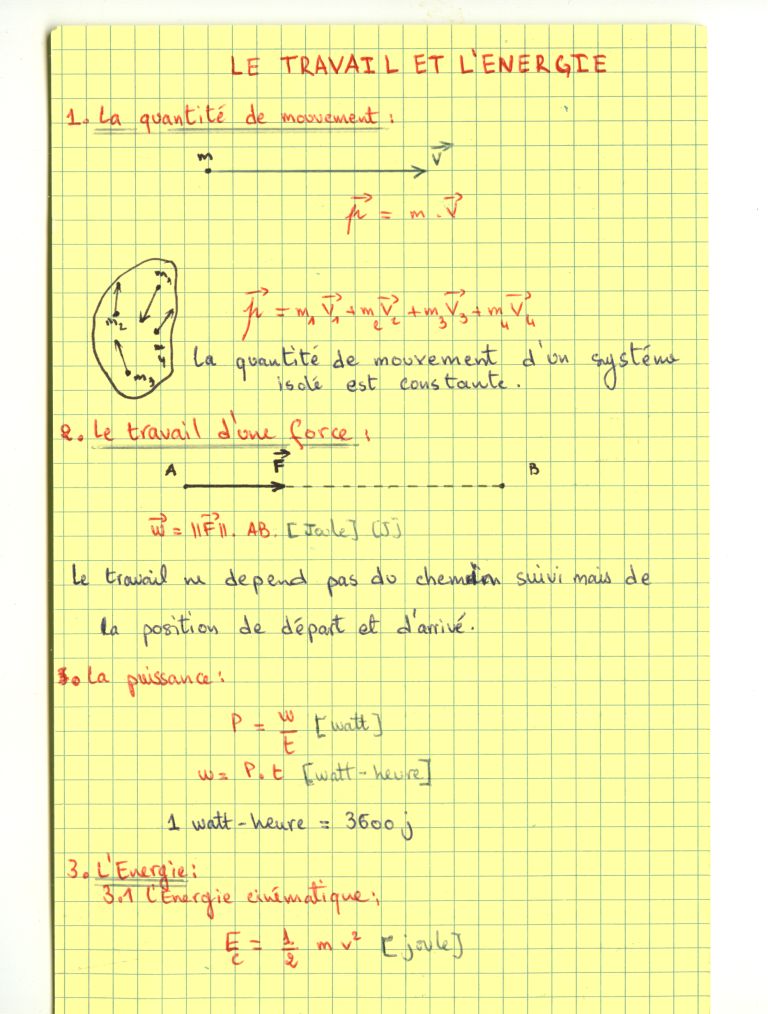 LE TRAVAIL ET L'ENERGIE
1. La quantité de mouvement :
m V⃗
p⃗ = m . V⃗
m1 m2 m4 m3
p⃗ = m1 V⃗1 + m2 V⃗2 + m3 V⃗3 + m4 V⃗4
La quantité de mouvement d'un systéme
isolé est constante.
2. Le travail d'une force :
A F⃗ B
w⃗ = ||F⃗|| . AB. [Joule] (J)
Le travail ne depend pas du chemin suivi mais de
la position de départ et d'arrivé.
La puissance :
P = w/t [watt]
w = P. t [watt-heure]
1 watt-heure = 3600 j
3. L'Energie :
3.1 L'Energie cinématique :
Ec = 1/2 m v² [joule]